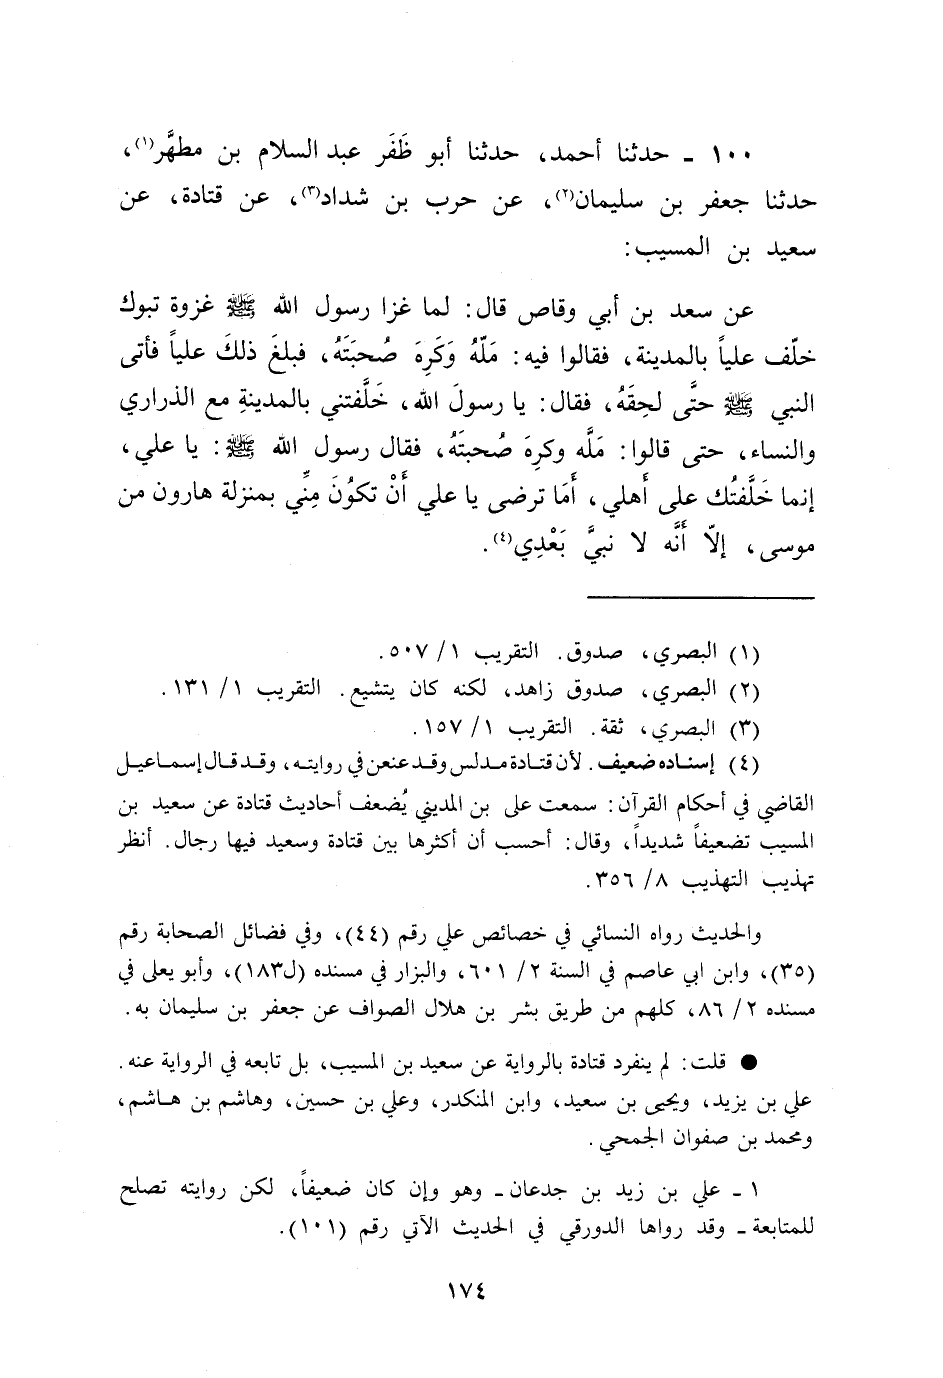 ١٠٠ ـ حدثنا أحمد، حدثنا أبو ظَفَر عبد السلام بن مطهَّر(١)،
حدثنا جعفر بن سليمان(٢)، عن حرب بن شداد(٣)، عن قتادة، عن
سعيد بن المسيب:
عن سعد بن أبي وقاص قال: لما غزا رسول الله ﷺ غزوة تبوك
خلّف علياً بالمدينة، فقالوا فيه: مَلّهُ وَكَرِهَ صُحبَتَهُ، فبلغَ ذلكَ علياً فأتى
النبي ﷺ حتَّى لحِقَهُ، فقال: يا رسولَ الله، خَلَّفتني بالمدينةِ مع الذراري
والنساء، حتى قالوا: مَلَّه وكرِهَ صُحبتَهُ، فقال رسول الله ﷺ: يا علي،
إنما خَلَّفتُك على أَهلي، أَمَا ترضى يا علي أَنْ تكوُنَ مِنِّي بمنزلة هارون من
موسى، إلاّ أَنَّه لا نبيَّ بَعْدِي(٤).
(١) البصري، صدوق. التقريب ١/ ٥٠٧.
(٢) البصري، صدوق زاهد، لكنه كان يتشيع. التقريب ١/ ١٣١.
(٣) البصري، ثقة. التقريب ١/ ١٥٧.
(٤) إسناده ضعيف. لأن قتادة مدلس وقد عنعن في روايته، وقد قال إسماعيل
القاضي في أحكام القرآن: سمعت علي بن المديني يُضعف أحاديث قتادة عن سعيد بن
المسيب تضعيفاً شديداً، وقال: أحسب أن أكثرها بين قتادة وسعيد فيها رجال. أنظر
تهذيب التهذيب ٨/ ٣٥٦.
والحديث رواه النسائي في خصائص علي رقم (٤٤)، وفي فضائل الصحابة رقم
(٣٥)، وابن ابي عاصم في السنة ٢/ ٦٠١، والبزار في مسنده (ل١٨٣)، وأبو يعلى في
مسنده ٢/ ٨٦، كلهم من طريق بشر بن هلال الصواف عن جعفر بن سليمان به.
● قلت: لم ينفرد قتادة بالرواية عن سعيد بن المسيب، بل تابعه في الرواية عنه.
علي بن يزيد، ويحيى بن سعيد، وابن المنكدر، وعلي بن حسين، وهاشم بن هاشم،
ومحمد بن صفوان الجمحي.
١ ـ علي بن زيد بن جدعان ـ وهو وإن كان ضعيفاً، لكن روايته تصلح
للمتابعة ـ وقد رواها الدورقي في الحديث الآتي رقم (١٠١).
١٧٤